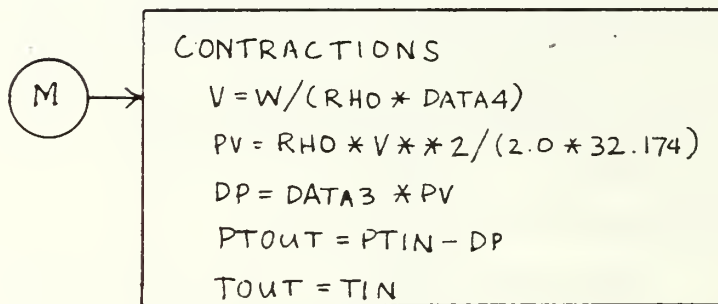 M
CONTRACTIONS
V = W/(RHO * DATA4)
PV = RHO * V * * 2/(2.0 * 32.174)
DP = DATA3 * PV
PTOUT = PTIN - DP
TOUT = TIN